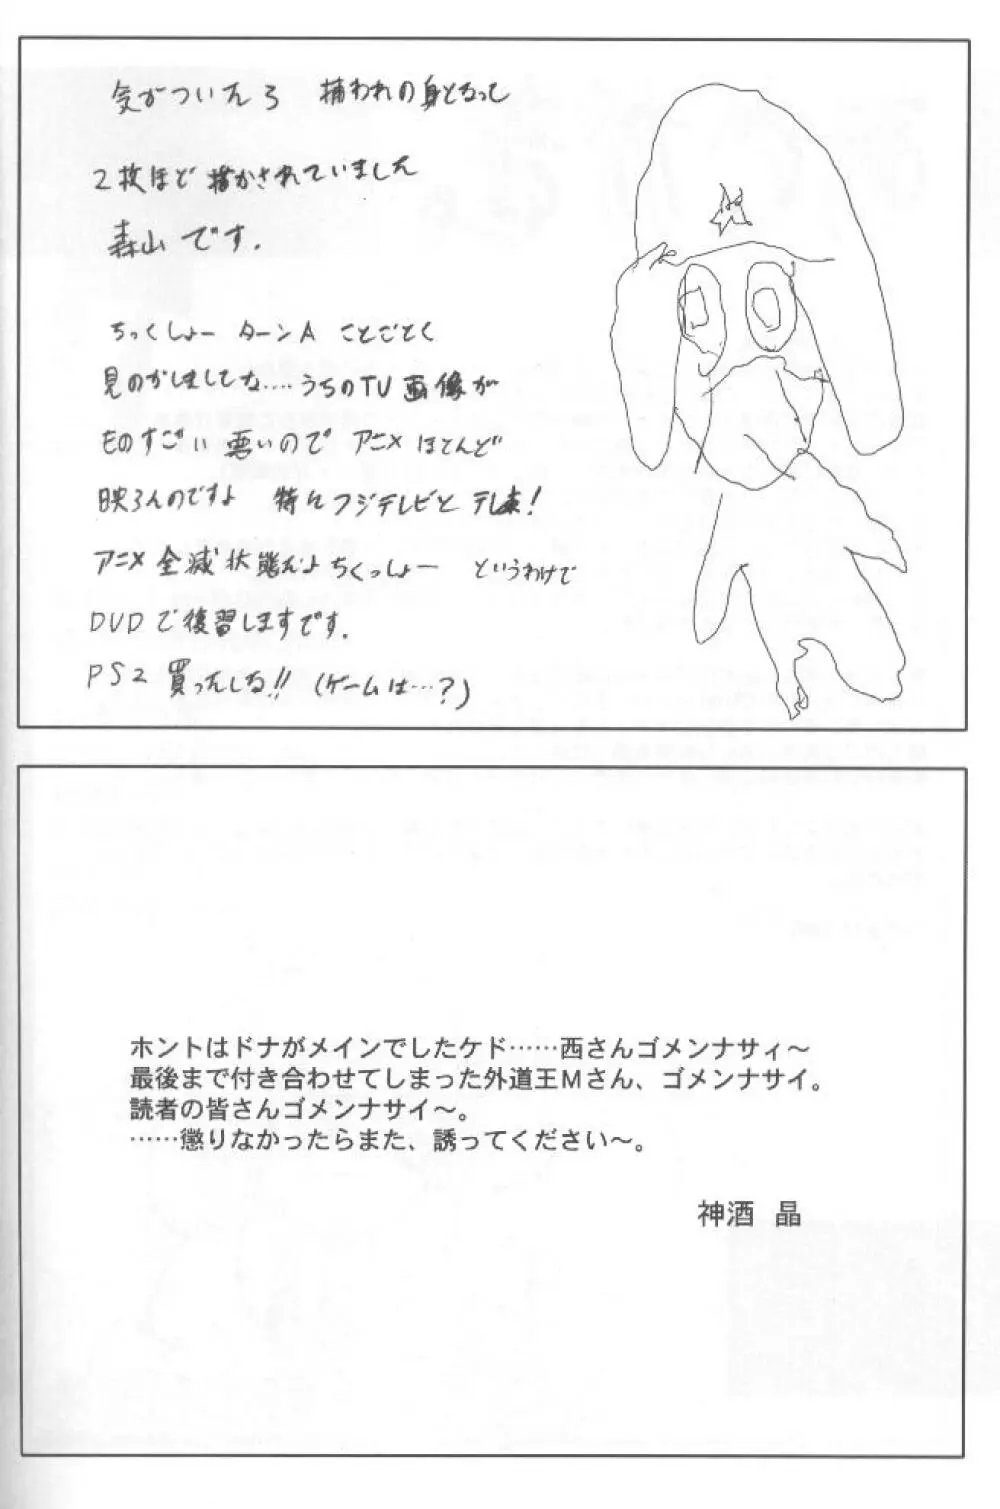 気がついたら 捕われの身となって
2枚ほど描かされていました
森山です.
ちっくしょー ターンA ことごとく
見のがしましてな....うちのTV画像が
ものすごい悪いので アニメほとんど
映らんのですよ 特にフジテレビとテレ東!
アニメ全滅状態だよちくっしょー というわけで
DVDで復習しますです.
PS2買ったしな!!(ゲームは…?)
ホントはドナがメインでしたケド……西さんゴメンナサィ～
最後まで付き合わせてしまった外道王Mさん、ゴメンナサイ。
読者の皆さんゴメンナサイ～。
……懲りなかったらまた、誘ってください～。
神酒 晶